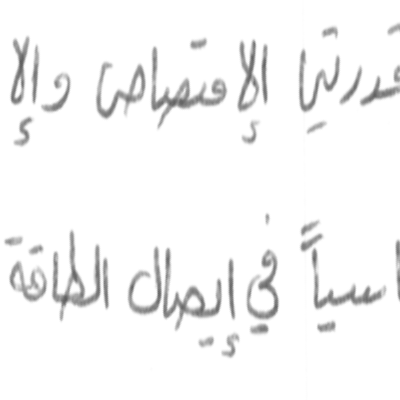 قدرتي الإمتصاص والإ
اسياً في إيصال الطاقة